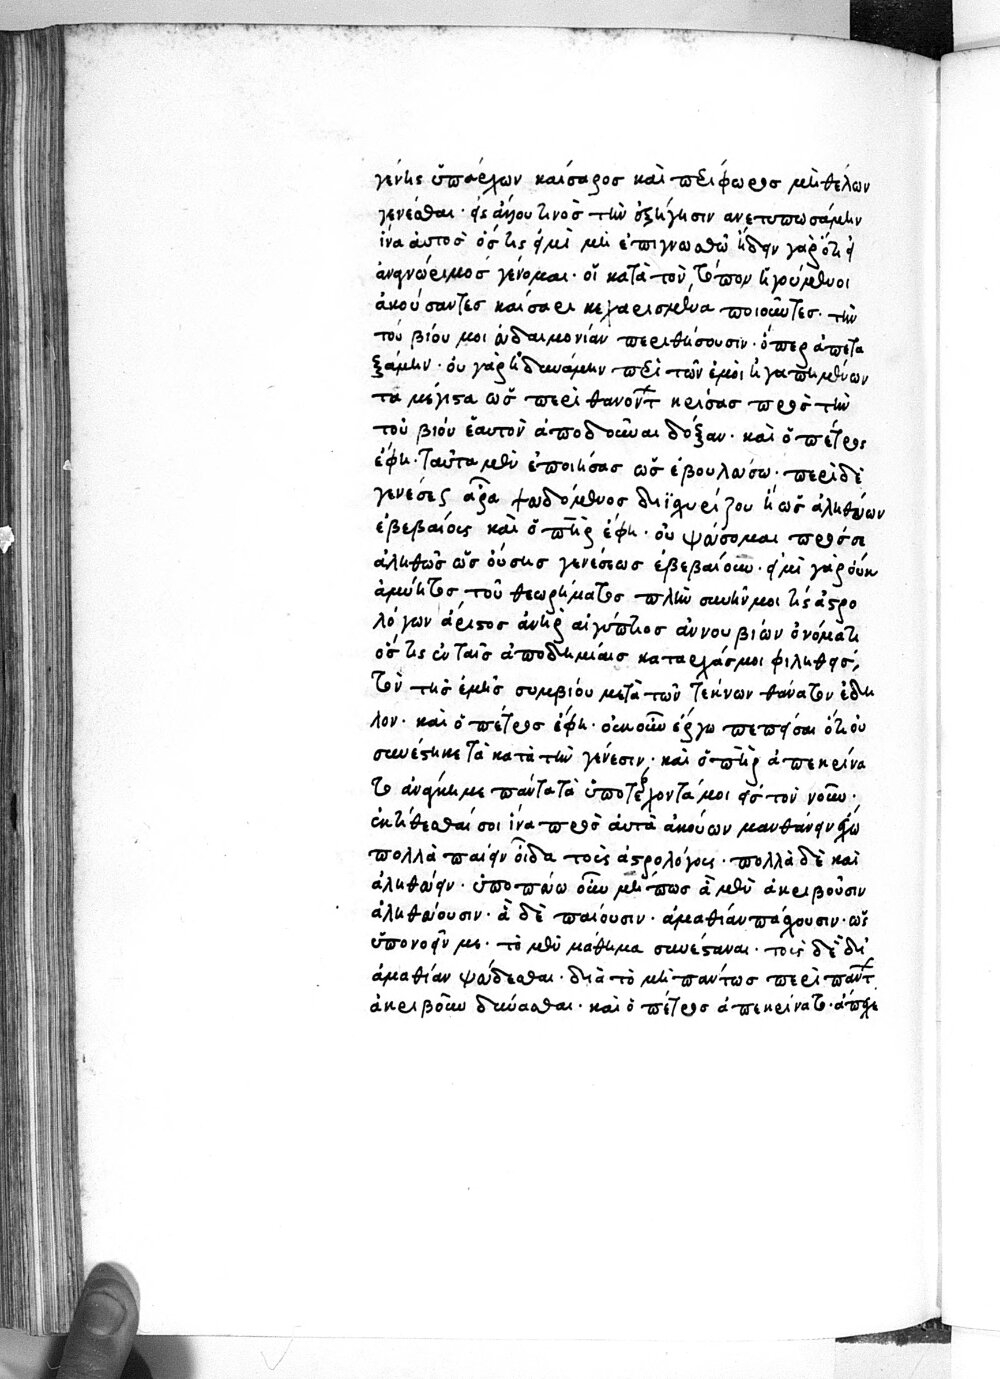 γενὴς ὑπάρχων καίσαρος καὶ περίφωρος μὴ θέλων
γενέσθαι· ὡς ἀπό τινος τὴν ἐξήγησιν ἀνετυπωσάμην
ἵνα αὐτὸς ὅστις εἰμὶ μὴ ἐπιγνωσθῶ ᾔδειν γὰρ ὅτι εἰ
ἀναγνώριμος γένωμαι· οἱ κατὰ τὸν τόπον ἡγούμενοι
ἀκούσαντες καίσαρι κεχαρισμένα ποιοῦντες· τὴν
τοῦ βίου μοι εὐδαιμονίαν περιθήσουσιν· ὅπερ ἀπετα
ξάμην· οὐ γὰρ ἠδυνάμην περὶ τῶν ἐμοὶ ἠγαπημένων
τὰ μέγιστα ὡς περὶ θανόντων κρίσας πρὸς τὴν
τοῦ βίου ἑαυτὸν ἀποδοῦναι δόξαν· καὶ ὁ πέτρος
ἔφη· ταῦτα μὲν ἐποίησας ὡς ἐβουλεύσω· περὶ δὲ
γενέσεως ἆρα ψευδόμενος διϊσχυρίζου ἢ ὡς ἀληθεύων
ἐβεβαίοις καὶ ὁ πατὴρ ἔφη· οὐ ψεύσομαι πρός σε
ἀληθῶς ὡς οὔσης γενέσεως ἐβεβαίουν· εἰμὶ γὰρ οὐκ
ἀμύητος τοῦ θεωρήματος πλὴν συνῆν μοι τίς ἀστρο
λόγων ἄριστος ἀνὴρ αἰγύπτιος ἀννουβιὼν ὀνόματι
ὅστις ἐν ταῖς ἀποδημίαις καταρχάς μοι φιληθεὶς,
τὸν τῆς ἐμῆς συμβίου μετὰ τῶν τέκνων θάνατον ἐδή
λου· καὶ ὁ πέτρος ἔφη· οὐκοῦν ἔργω πέπεισαι ὅτι οὐ
συνέστηκε τὰ κατὰ τὴν γένεσιν· καὶ ὁ πατὴρ ἀπεκρίνα
το ἀνάγκη με πάντα τὰ ὑποτρέχοντά μοι εἰς τὸν νοῦν·
ἐκτίθεσθαί σοι ἵνα πρὸς αὐτὰ ἀκούων μανθάνειν ἔχω
πολλὰ παίειν οἶδα τοῖς ἀστρολόγοις· πολλὰ δὲ καὶ
ἀληθεύειν· ὑποπτεύω οὖν μήπως ἃ μὲν ἀκριβοῦσιν
ἀληθεύουσιν· ἃ δὲ παίουσιν· ἀμαθίαν πάσχουσιν· ὡς
ὑπονοεῖν με· τὸ μὲν μάθημα συνεστάναι· τοὺς δὲ δι'
ἀμαθίαν ψεύδεσθαι· διὰ τὸ μὴ πάντως περὶ πάντων
ἀκριβοῦν δύνασθαι· καὶ ὁ πέτρος ἀπεκρίνατο· ἄπεχε